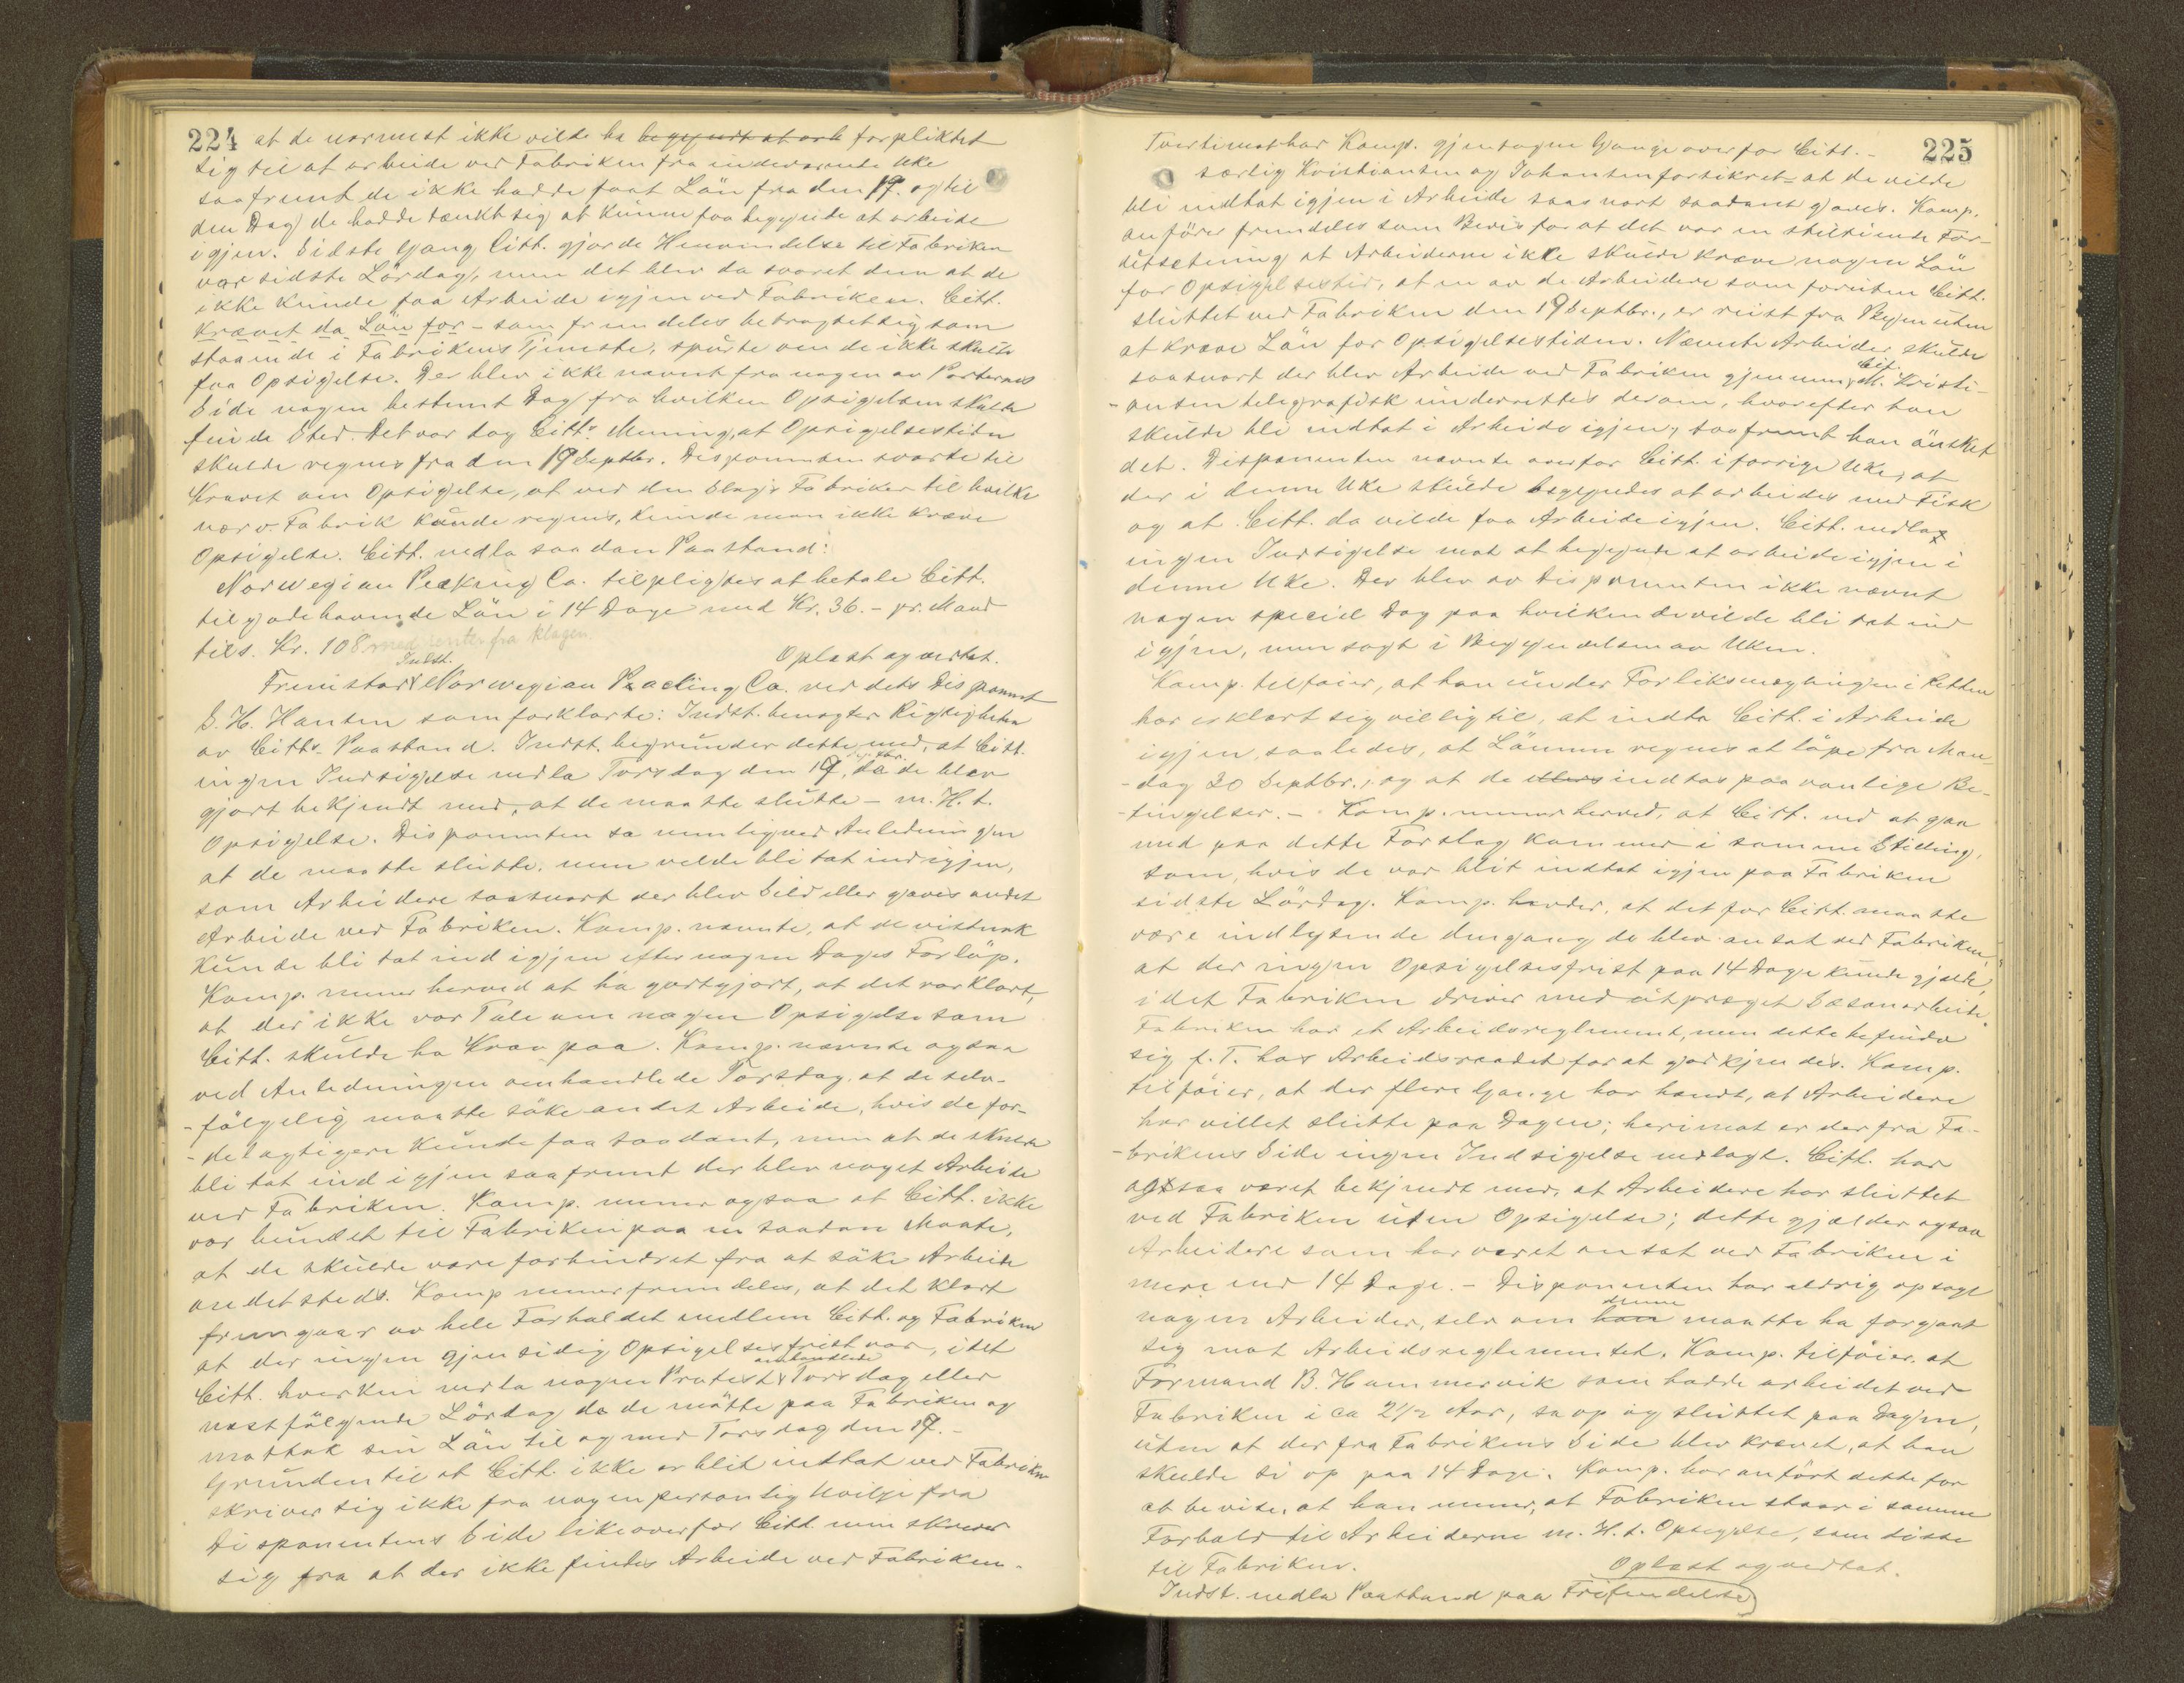 224 at de nærmest ikke vilde ha begyndt at arb forpliktet
sig til at arbeide ved Fabriken fra indeværende Uke
saafremt de ikke hadde faat Lön fra den 19. og til
den Dag de hadde tænkt sig at kunne faa begynde at arbeide
igjen. Sidste Gang Citt. gjorde Henvendelse til Fabriken
var sidste Lördag, men det blev da svaret dem at de
ikke kunde faa Arbeide igjen ved Fabriken. Citt.
krævet da Lön for – som fremdeles betragtet sig som
staaende i Fabrikens Tjeneste, spurte om de ikke skulde
faa Opsigelse. Der blev ikke nævnt fra nogen av Parternes
Side nogen bestemt Dag fra hvilken Opsigelsen skulde
finde Sted. Det var dog Citt.s Mening, at Opsigelsestiden
skulde regnes fra den 19 Septbr. Disponenten svarte til
Kravet om Opsigelse, at ved den Slags Fabriker til hvilke
nærv. Fabrik kunde regnes, kunde man ikke kræve
Opsigelse. Citt. nedla saadan Paastand:
Norwegian Packing Co. tilpligtes at betale Citt.
tilgodehavende Lön i 14 Dage med Kr. 36.– pr. Mand
tils. Kr. 108 med renter fra klagen.
Oplæst og vedtat.
Indst.
Fremstod Norwegian Packing Co. ved dets Disponent
S. H. Hansen som forklarte: Indst. benegter Rigtigheten
av Citts. Paastand. Indst. begrunder dette med, at Citt.
Septbr.
ingen Indsigelse nedla Torsdag den 19, da de blev
gjort bekjendt med, at de maatte slutte – m. H. t.
Opsigelse. Disponenten sa nemlig ved Anledningen
at de maatte slutte, men vilde bli tat ind igjen,
som Arbeidere saasnart der blev Sild eller gaves andet
Arbeide ved Fabriken. Komp. nævnte, at de vistnok
kunde bli tat ind igjen efter nogen Dages Forlöp.
Komp. mener herved at ha godtgjort, at det var klart,
at der ikke var Tale om nogen Opsigelse som
Citt. skulde ha Krav paa. Komp. nævnte ogsaa
ved Anledningen omhandlede Torsdag, at de selv-
-fölgelig maatte söke andet Arbeide, hvis de for-
-delagtigere kunde faa saadant, men at de skulde
bli tat ind igjen saafremt der blev noget Arbeide
ved Fabriken. Komp. mener ogsaa at Citt. ikke
var bundet til Fabriken paa en saadan Maate,
at de skulde være forhindret fra at söke Arbeide
andetsteds. Komp mener fremdeles, at det klart
fremgaar av hele Forholdet mellem Citt. og Fabriken
at der ingen gjensidig Opsigelsesfrist var, idet
omhandlede
Citt. hverken nedla nogen Protest Torsdag eller
næstfölgende Lördag da de mötte paa Fabriken og
mottok sin Lön til og med Torsdag den 19. –
Grunden til at Citt. ikke er blit indtat ved Fabriken
skriver sig ikke fra nogen personlig Uvilje fra
Disponentens Side likeoverfor Citt. men skriver
sig fra at der ikke findes Arbeide ved Fabriken.
225
Tvertimot har Komp. gjentagne Gange overfor Citt. –
særlig Kristiansen og Johansen forsikret – at de vilde
bli indtat igjen i Arbeide saasnart saadant gaves. Komp.
anförer fremdeles som Bevis for at det var en stiltiende For-
utsetning at Arbeiderne ikke skulde kræve nogen Lön
for Opsigelsestid, at en av de Arbeidere som foruten Citt.
sluttet ved Fabriken den 19 Septbr., er reist fra Byen uten
at kræve Lön for Opsigelsestiden. Nævnte Arbeider skulde
Cit.
saasnart der blev Arbeide ved Fabriken gjennem M. Kristi-
-ansen telegrafisk underrettes derom, hvorefter han
skulde bli indtat i Arbeide igjen, saafremt han önsket
det. Disponenten nævnte overfor Citt. i forrige Uke, at
der i denne Uke skulde begyndes at arbeides med Fisk
og at Citt. da vilde faa Arbeide igjen. Citt. nedla
ingen Indsigelse mot at begynde at arbeide igjen i
denne Uke. Der blev av Disponenten ikke nævnt
nogen speciel Dag paa hvilken de vilde bli tat ind
igjen, men sagt i Begyndelsen av Uken.
Komp. tilföier, at han under Forliksmæglingen i Retten
har erklært sig villig til, at indta Citt. i Arbeide
igjen, saaledes, at Lönnen regnes at löpe fra Man-
-dag 30 Septbr., og at de ellers indtas paa vanlige Be-
-tingelser. – Komp. mener herved, at Citt. ved at gaa
med paa dette Forslag kommer i samme Stilling,
som, hvis de var blit indtat igjen paa Fabriken
sidste Lördag. Komp. hævder, at det for Citt. maatte
være indlysende dengang de blev ansat ved Fabriken,
at der ingen Opsigelsesfrist paa 14 Dage kunde gjælde,
idet Fabriken driver med utpræget Sæsonarbeide.
Fabriken har et Arbeidsreglement, men dette befinder
sig f. T. hos Arbeidsraadet for at godkjendes. Komp.
tilföier, at der flere Gange har hændt, at Arbeidere
har villet slutte paa Dagen; herimot er der fra Fa-
-brikens Side ingen Indsigelse nedlagt. Citt. har
ogsaa været bekjendt med, at Arbeidere har sluttet
ved Fabriken uten Opsigelse; dette gjælder ogsaa
Arbeidere som har været ansat ved Fabriken i
mere end 14 Dage. – Disponenten har aldrig opsagt
denne
nogen Arbeider, selv om han maatte ha forgaat
sig mot Arbeidsreglementet. Komp. tilföier, at
Formand B. Hammervik som hadde arbeidet ved
Fabriken i ca 2½ Aar, sa op og sluttet paa Dagen,
uten at der fra Fabrikens Side blev krævet, at han
skulde si op paa 14 Dage. Komp. har anfört dette for
at bevise, at han mener, at Fabriken staar i samme
Forhold til Arbeiderne m. H. t. Opsigelse, som disse
til Fabriken.
Oplæst og vedtat.
Indst. nedla Paastand paa Frifindelse